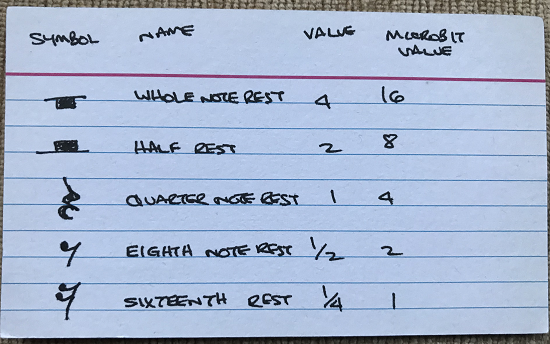 SYMBOL NAME VALUE MICROBIT VALUE
WHOLE NOTE REST 4 16
HALF REST 2 8
QUARTER NOTE REST 1 4
EIGHTH NOTE REST 1/2 2
SIXTEENTH REST 1/4 1